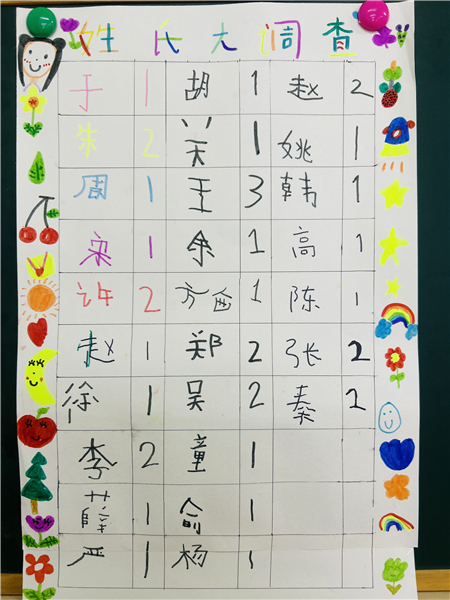 姓氏大调查
于 1 胡 1 赵 2
朱 2 关 1 姚 1
周 1 王 3 韩 1
宋 1 余 1 高 1
许 2 方 1 陈 1
赵 1 郑 2 张 2
徐 1 吴 2 秦 2
李 2 童 1
薛 1 俞 1
严 1 杨 1